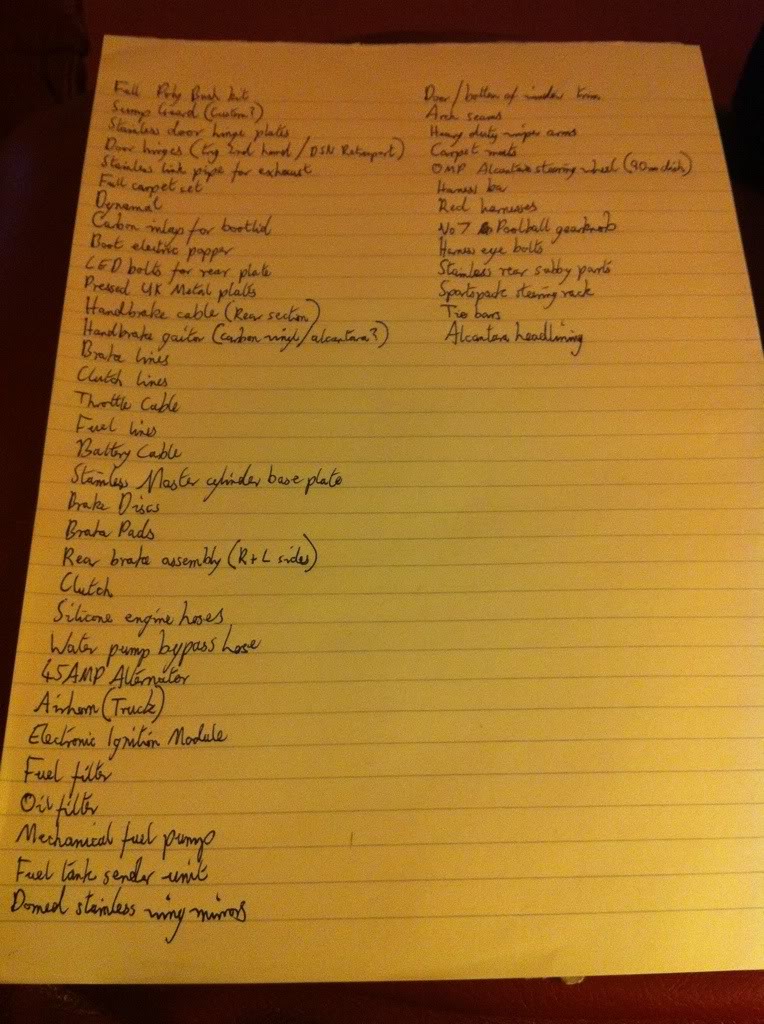 Full Poly Bush kit
Sump Guard (Custom?)
Stainless door hinge plates
Door hinges (try 2nd hand / DSN Retroport)
Stainless link pipe for exhaust
Full carpet set
Dynamat
Carbon inlays for bootlid
Boot electric popper
LED bolts for rear plate
Pressed UK Metal plates
Handbrake cable (Rear section)
Handbrake gaitor (carbon vinyl/alcantara?)
Brake lines
Clutch lines
Throttle Cable
Fuel lines
Battery Cable
Stainless Master cylinder base plate
Brake Discs
Brake Pads
Rear brake assembly (R+L sides)
Clutch
Silicone engine hoses
Water pump bypass hose
45AMP Alternator
Airhorn (Truck)
Electronic Ignition Module
Fuel filter
Oil filter
Mechanical fuel pump
Fuel tank sender unit
Domed stainless wing mirrors
Door/bottom of window trim
Arch seams
Heavy duty wiper arms
Carpet mats
OMP Alcantara steering wheel (90mm dish)
Harness bar
Red harnesses
No7 Poolball gearknob
Harness eye bolts
Stainless rear subby parts
Sportspack steering rack
Tie bars
Alcantara headlining